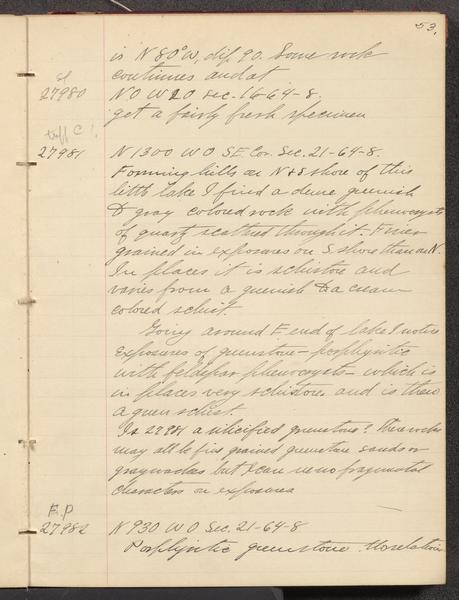 53.
is N 80° W, dip 90. Same rock
continues and at
sl
27980 N 0 W 20 Sec. 16-64-8.
get a fairly fresh specimen
tuff C?
27981 N 1300 W 0 SE. Cor. Sec. 21-64-8.
Forming hills on N & S shore of this
little lake I find a dense greenish
& gray colored rock with phenocrysts
of quartz scattered through it. Finer
grained in exposures on S. shore than on N.
In places it is schistose and
varies from a greenish to a cream
colored schist.
Going around E end of lake I notice
exposures of greenstone - porphyritic
with feldspar phenocrysts - which is
in places very schistose, and is then
a green schist.
Is 27981 a silicified greenstone? These rocks
may all be fine grained greenstone sands or
graywackes but I can see no fragmental
characters on exposures
F.P
27982 N 930 W 0 Sec. 21-64-8
Porphyritic greenstone. No relations